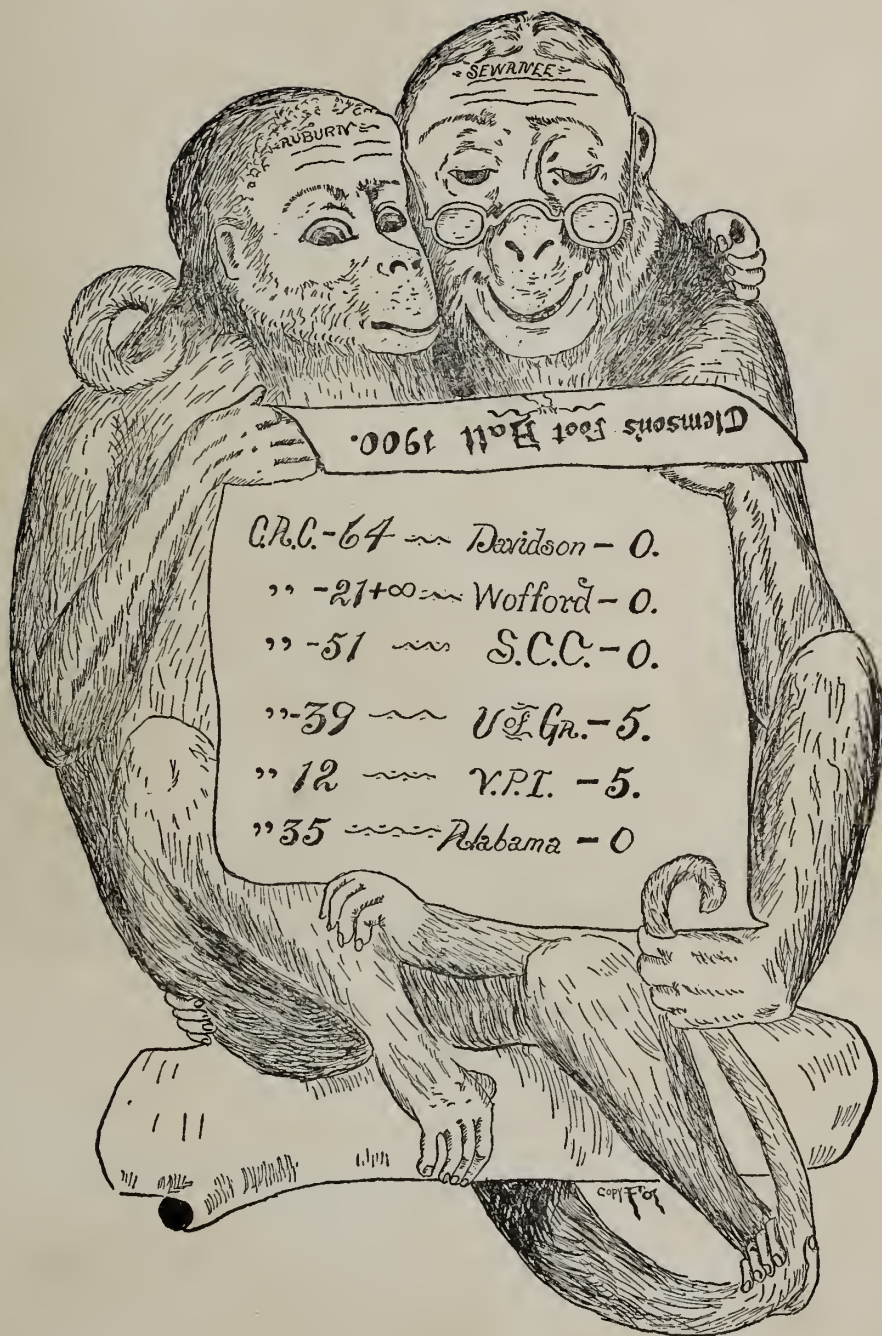 SEWANEE
AUBURN
Clemson's Foot Ball 1900.
C.A.C. - 64 ~~ Davidson - 0.
" - 21+∞ ~~ Wofford - 0.
" - 51 ~~ S.C.C. - 0.
" - 39 ~~ U of GA. - 5.
" 12 ~~ V.P.I. - 5.
" 35 ~~ Alabama - 0
COPY F '01